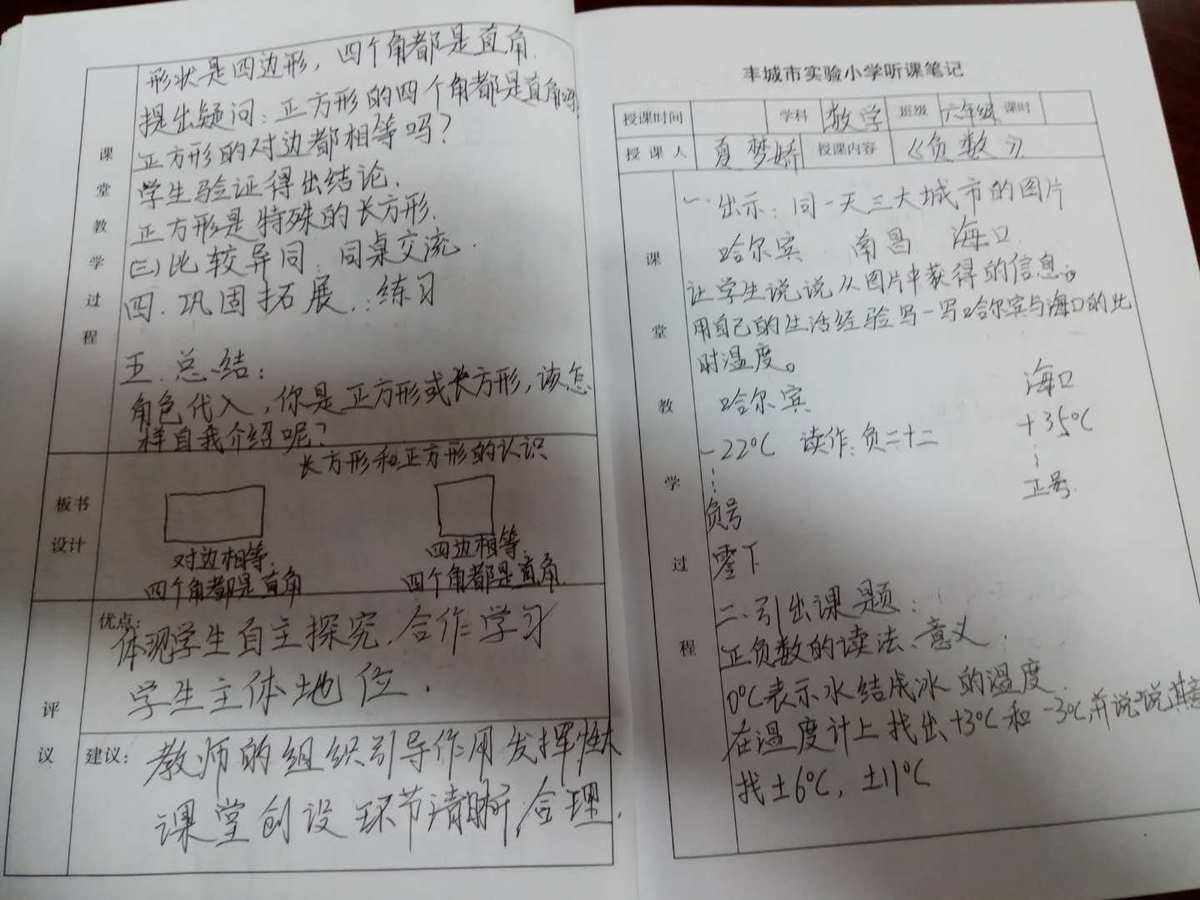 形状是四边形，四个角都是直角.
提出疑问：正方形的四个角都是直角吗
正方形的对边都相等吗？
学生验证得出结论.
正方形是特殊的长方形.
(三)比较异同：同桌交流.
四.巩固拓展：练习
五.总结：
角色代入，你是正方形或长方形，该怎
样自我介绍呢？
课堂教学过程
板书设计
长方形和正方形的认识
对边相等. 四边相等.
四个角都是直角 四个角都是直角.
评议
优点：
体现学生自主探究.合作学习
学生主体地位.
建议：
教师的组织引导作用发挥
课堂创设环节清晰,合理.
丰城市实验小学听课笔记
授课时间 学科 数学 班级 六年级 课时
授课人 夏梦娇 授课内容 《负数》
课堂教学过程
一.出示：同一天三大城市的图片
哈尔宾 南昌 海口
让学生说说从图片中获得的信息,
用自己的生活经验写一写哈尔宾与海口的此
时温度。
哈尔宾 海口
-22℃ 读作：负二十二 +35℃
负号 正号.
零下
二.引出课题：
正负数的读法、意义.
0℃表示水结成冰的温度.
在温度计上找出+3℃和-3℃,并说说其意
找±6℃，±11℃